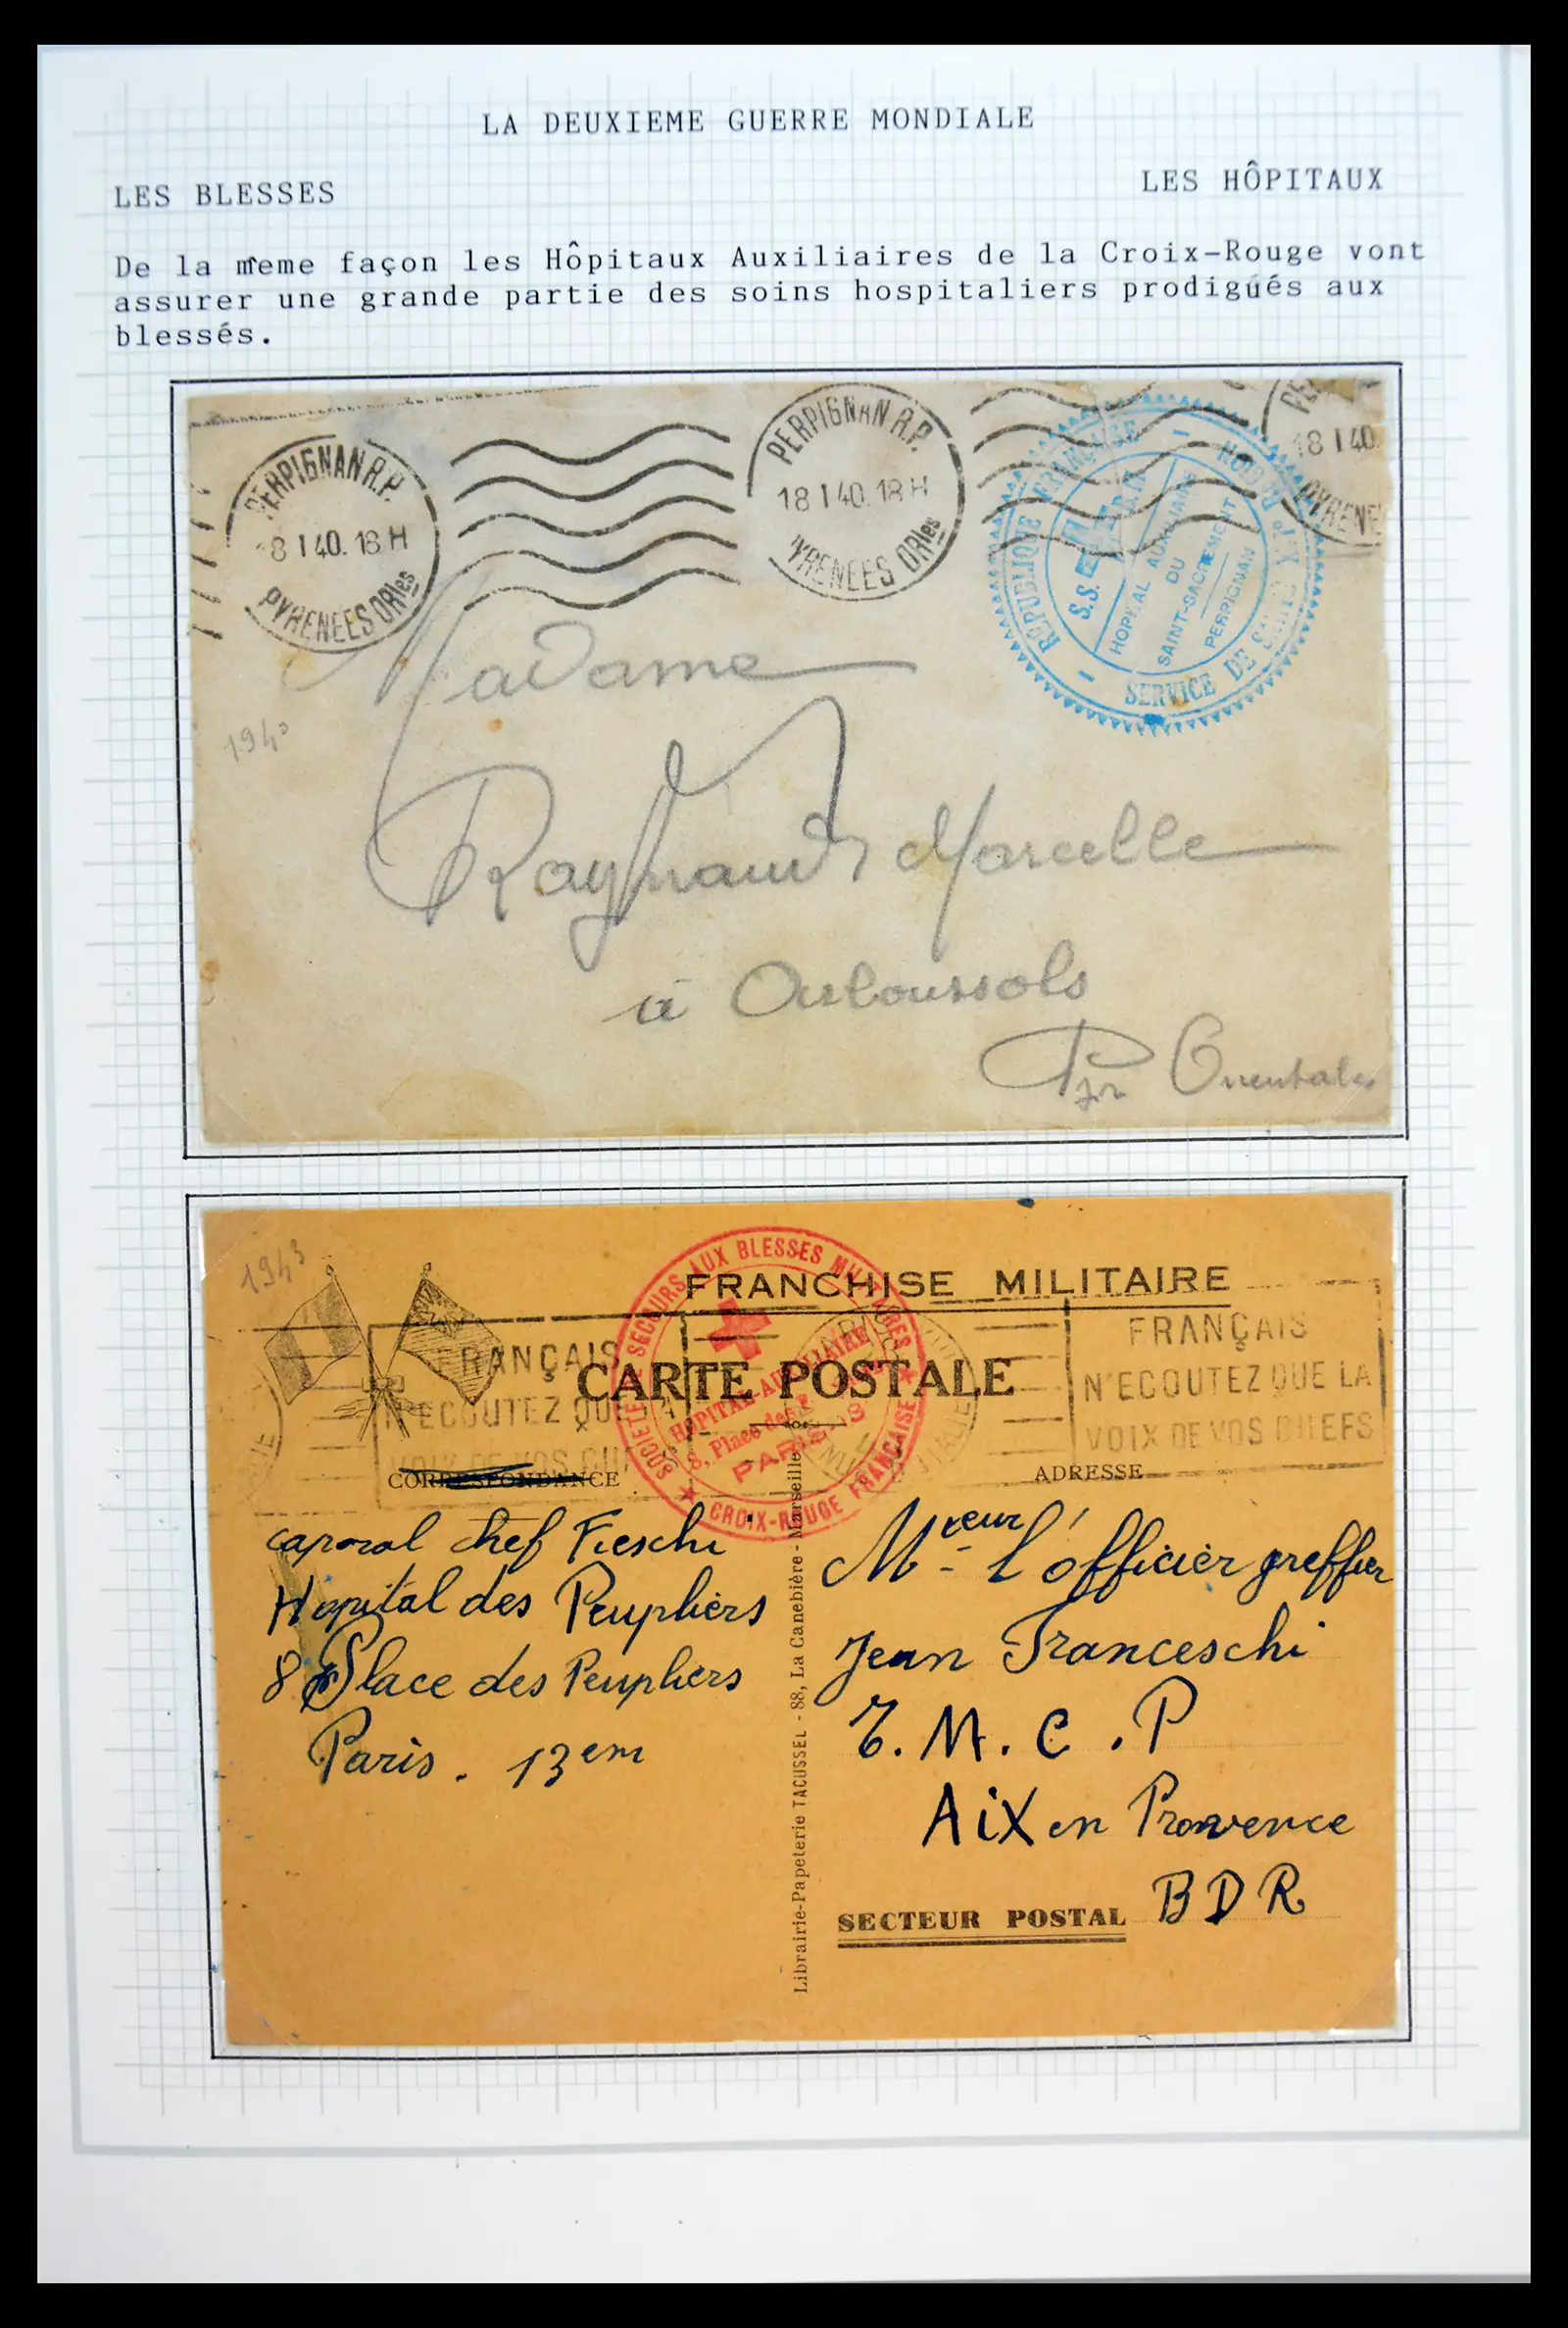 LA DEUXIEME GUERRE MONDIALE
LES BLESSES
LES HÔPITAUX
De la meme façon les Hôpitaux Auxiliaires de la Croix-Rouge vont
assurer une grande partie des soins hospitaliers prodigués aux
blessés.
PERPIGNAN R.P.
18 I 40. 18 H
PYRENEES ORles
PERPIGNAN R.P.
18 I 40. 18 H
PYRENEES ORles
18 I 40.
REPUBLIQUE FRANÇAISE
SERVICE DE
S.S.
HOPITAL AUXILIAIRE
DU
SAINT-SACREMENT
PERPIGNAN
1940
Madame
Raynaud Marcelle
à Arboussols
Pyr Orientales
1943
FRANCHISE MILITAIRE
CARTE POSTALE
FRANÇAIS
N'ECOUTEZ QUE
VOIX DE VOS
FRANÇAIS
N'ECOUTEZ QUE LA
VOIX DE VOS CHEFS
SOCIETE SECOURS AUX BLESSES MILITAIRES
HOPITAL-AUXILIAIRE
8, Place des
PARIS
CROIX-ROUGE FRANÇAISE
CORRESPONDANCE
ADRESSE
caporal chef Fieschi
Hopital des Peupliers
8 Place des Peupliers
Paris. 13em
Librairie-Papeterie TACUSSEL - 88, La Canebière - Marseille
Mr ieur L'officier greffier
Jean Franceschi
T.M.C.P
Aix en Provence
BDR
SECTEUR POSTAL